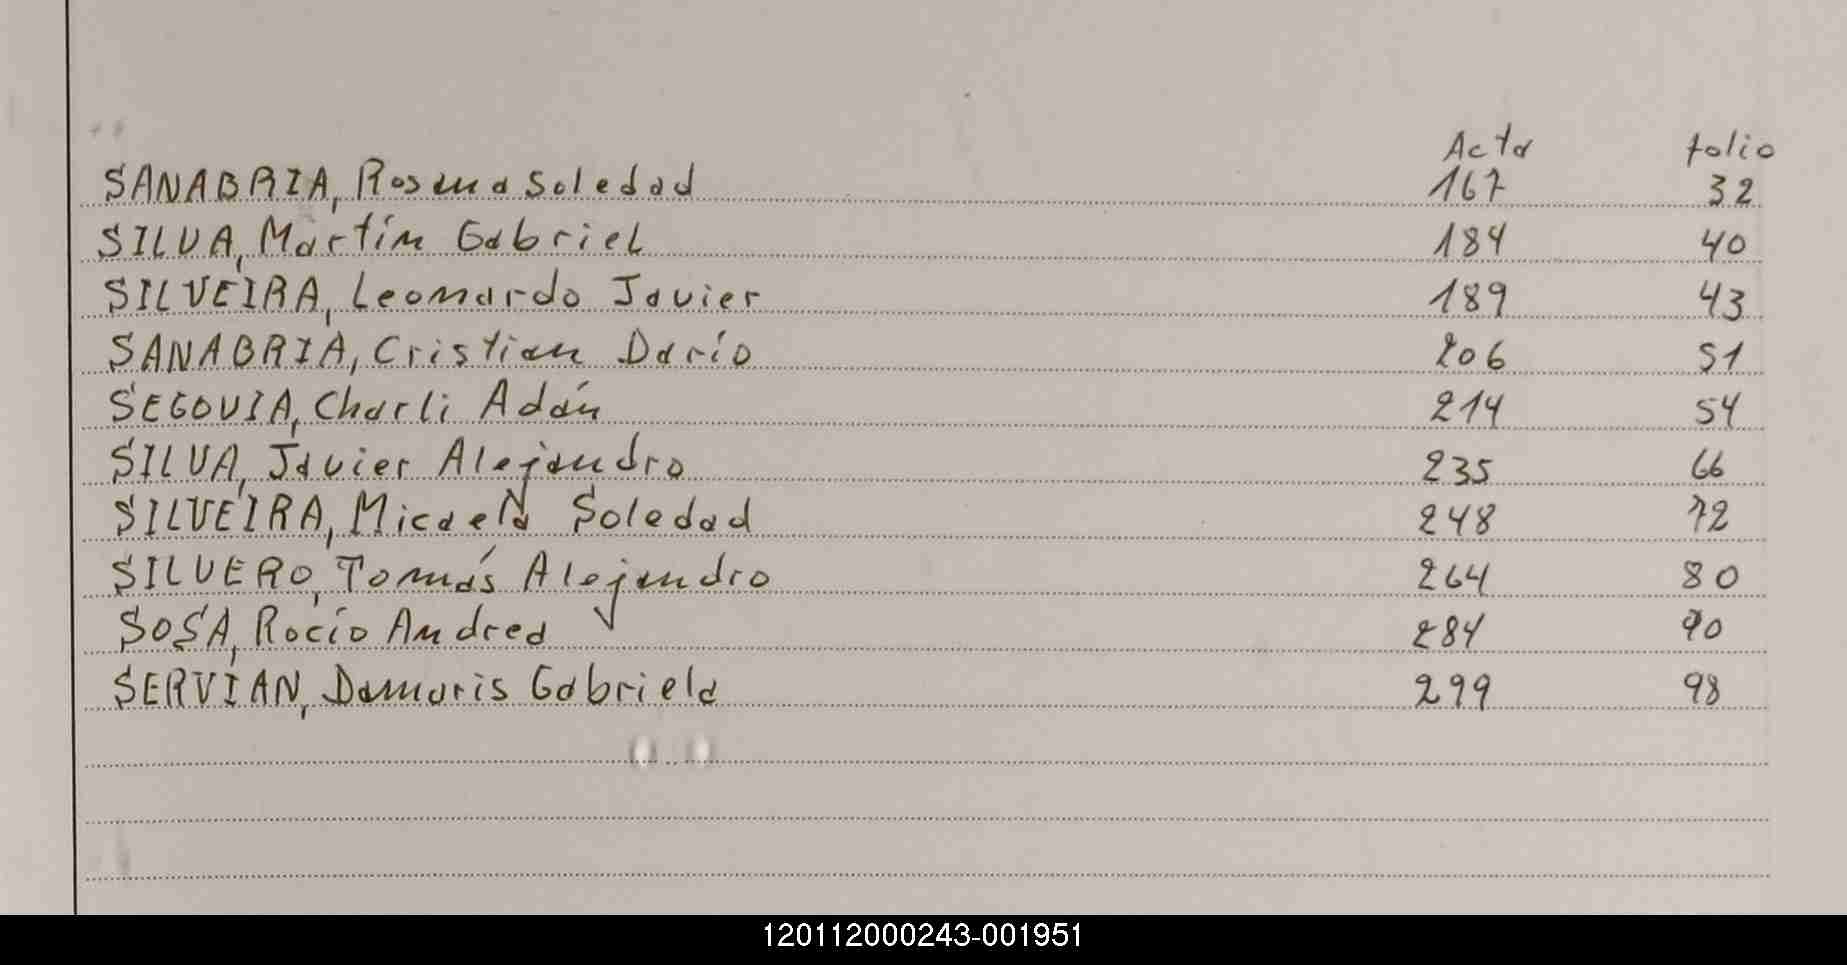 Acta folio
SANABRIA, Rosana Soledad 167 32
SILVA, Martín Gabriel 184 40
SILVEIRA, Leonardo Javier 189 43
SANABRIA, Cristian Darío 206 51
SEGOVIA, Charli Adán 214 54
SILVA, Javier Alejandro 235 66
SILVEIRA, Micaela Soledad 248 72
SILVERO, Tomás Alejandro 264 80
SOSA, Rocío Andrea 284 90
SERVIAN, Damaris Gabriela 299 98
120112000243-001951